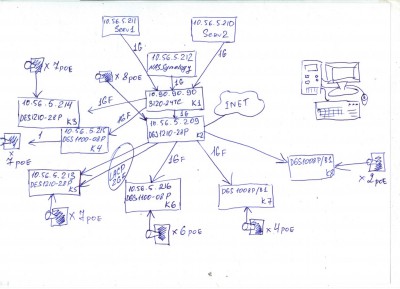 10.56.5.211
Serv1
10.56.5.210
Serv2
10.56.5.212
NAS Synology
1G
1G
1G
10.90.90.90
3120-24TC K1
1G
10.56.5.209
DES1210-28P K2
INET
x 7 POE
x 8 POE
1GF
10.56.5.214
DES1210-28P
K3
1GF
1
10.56.5.215
DGS1100-08P
K4
x 7 POE
10.56.5.213
DES1210-28P
K5
LACP
2G
x 7 POE
1GF
10.56.5.216
DGS1100-08P
K6
x 6 POE
1GF
DGS1008P/B1
K7
x 4 POE
1GF
DGS1008P/B1
K8
x 2 POE